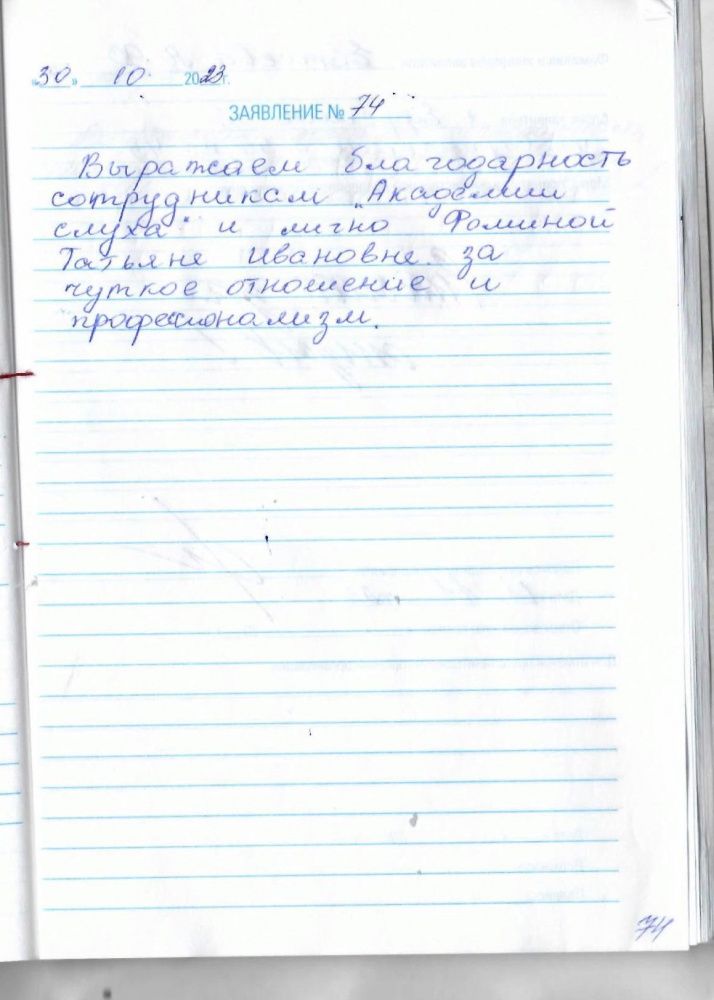 «30» 10. 2023г.
ЗАЯВЛЕНИЕ № 74
Выражаем благодарность
сотрудникам „Академии
слуха" и лично Фоминой
Татьяне Ивановне за
чуткое отношение и
профессионализм.
74